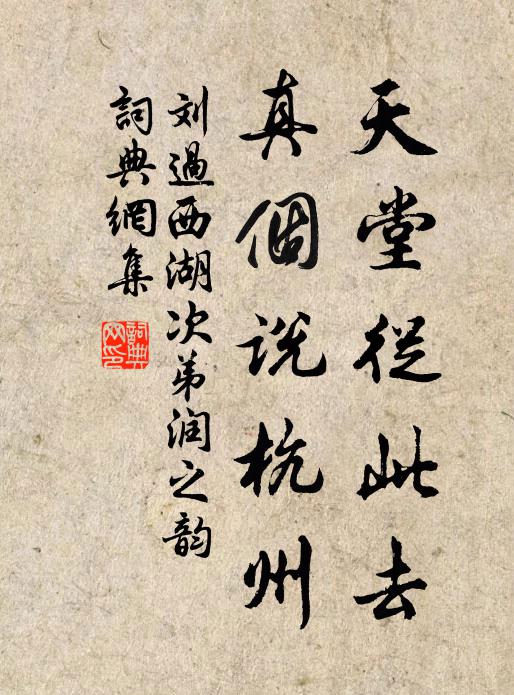 天堂從此去
真個説杭州
刘過西湖次弟润之韵
詞典網集
詞典網印